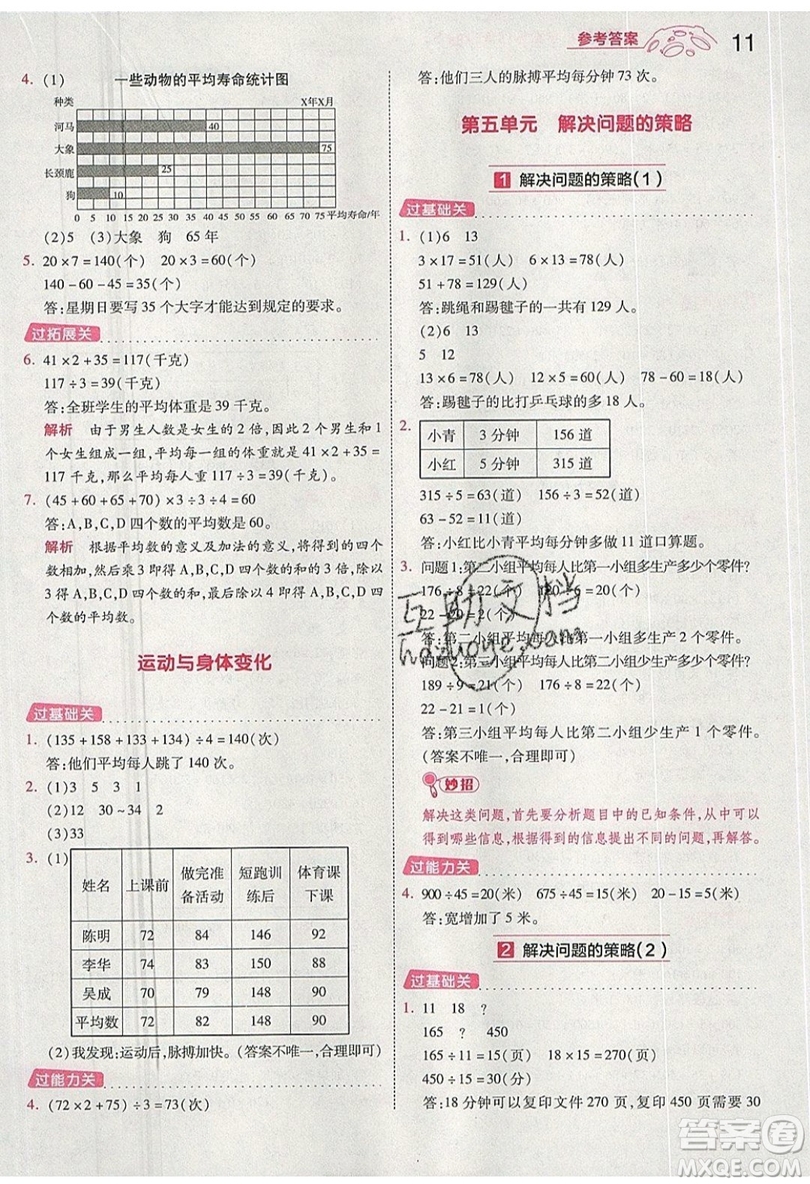 参考答案 11
4. (1) 一些动物的平均寿命统计图
种类 X年X月
河马 40
大象 75
长颈鹿 25
狗 10
0 5 10 15 20 25 30 35 40 45 50 55 60 65 70 75 平均寿命/年
(2)5 (3)大象 狗 65年
5. 20×7=140(个) 20×3=60(个)
140-60-45=35(个)
答:星期日要写35个大字才能达到规定的要求。
过拓展关
6. 41×2+35=117(千克)
117÷3=39(千克)
答:全班学生的平均体重是39千克。
解析 由于男生人数是女生的2倍,因此2个男生和1
个女生组成一组,平均每一组就重41+41+35=
117千克,那么平均体重117÷3=39(千克)。
7. (45+60+75)×3÷3÷3=60
答:A,B,C,D四个数的平均数是60。
解析 根据平均数的意义及加法的意义,将得到的三个数
相加,然后乘3得到A,B,C,D四个数的和的3倍,除以
3得A,B,C,D四个数的和,最后除以4得A,B,C,D四
个数的平均数。
运动与身体变化
过基础关
1. (135+158+133+134)÷4=140(次)
答:他们平均每人跳了140次。
2. (1)3 5 3 1
(2)12 30~34 2
(3)33
3. (1)
姓名 上课前 做完准备活动 短跑训练后 体育课下课
陈明 72 84 146 92
李华 72 80 150 88
吴成 72 82 148 90
平均数 72 82 148 90
(2)我发现:运动后,脉搏加快。(答案不唯一,合理即可)
过能力关
4. (72×2+75)÷3=73(次)
答:他们三人的脉搏平均每分钟73次。
第五单元 解决问题的策略
1 解决问题的策略(1)
过基础关
1. (1)6 13
3×17=51(人) 6×13=78(人)
51+78=129(人)
答:跳绳和踢毽子的一共有129人。
(2)6 13
5 12
13×6=78(人) 12×5=60(人) 78-60=18(人)
答:踢毽子的比打乒乓球的多18人。
2.
小青 3分钟 156道
小红 5分钟 315道
315÷5=63(道) 156÷3=52(道)
63-52=11(道)
答:小红比小青平均每分钟多做11道口算题。
3. 问题1:第二小组平均每人比第一小组多生产多少个零件?
176÷8=22(个) 140÷7=20(个)
22-20=2(个)
答:第二小组平均每人比第一小组多生产2个零件。
问题2:第三小组平均每人比第二小组少生产多少个零件?
189÷9=21(个) 176÷8=22(个)
22-21=1(个)
答:第三小组平均每人比第二小组少生产1个零件。
(答案不唯一,合理即可)
妙招
解决这类问题,首先要分析题目中的已知条件,从中可以
得到哪些信息,根据得到的信息提出不同的问题,再解答。
过能力关
4. 900÷45=20(米) 675÷45=15(米) 20-15=5(米)
答:宽增加了5米。
2 解决问题的策略(2)
过基础关
1. 11 18 ?
165 ? 450
165÷11=15(页) 18×15=270(页)
450÷15=30(分)
答:18分钟可以复印文件270页,复印450页需要30
互助文档
hdzuoye.xam
答案圈
MXQE.COM